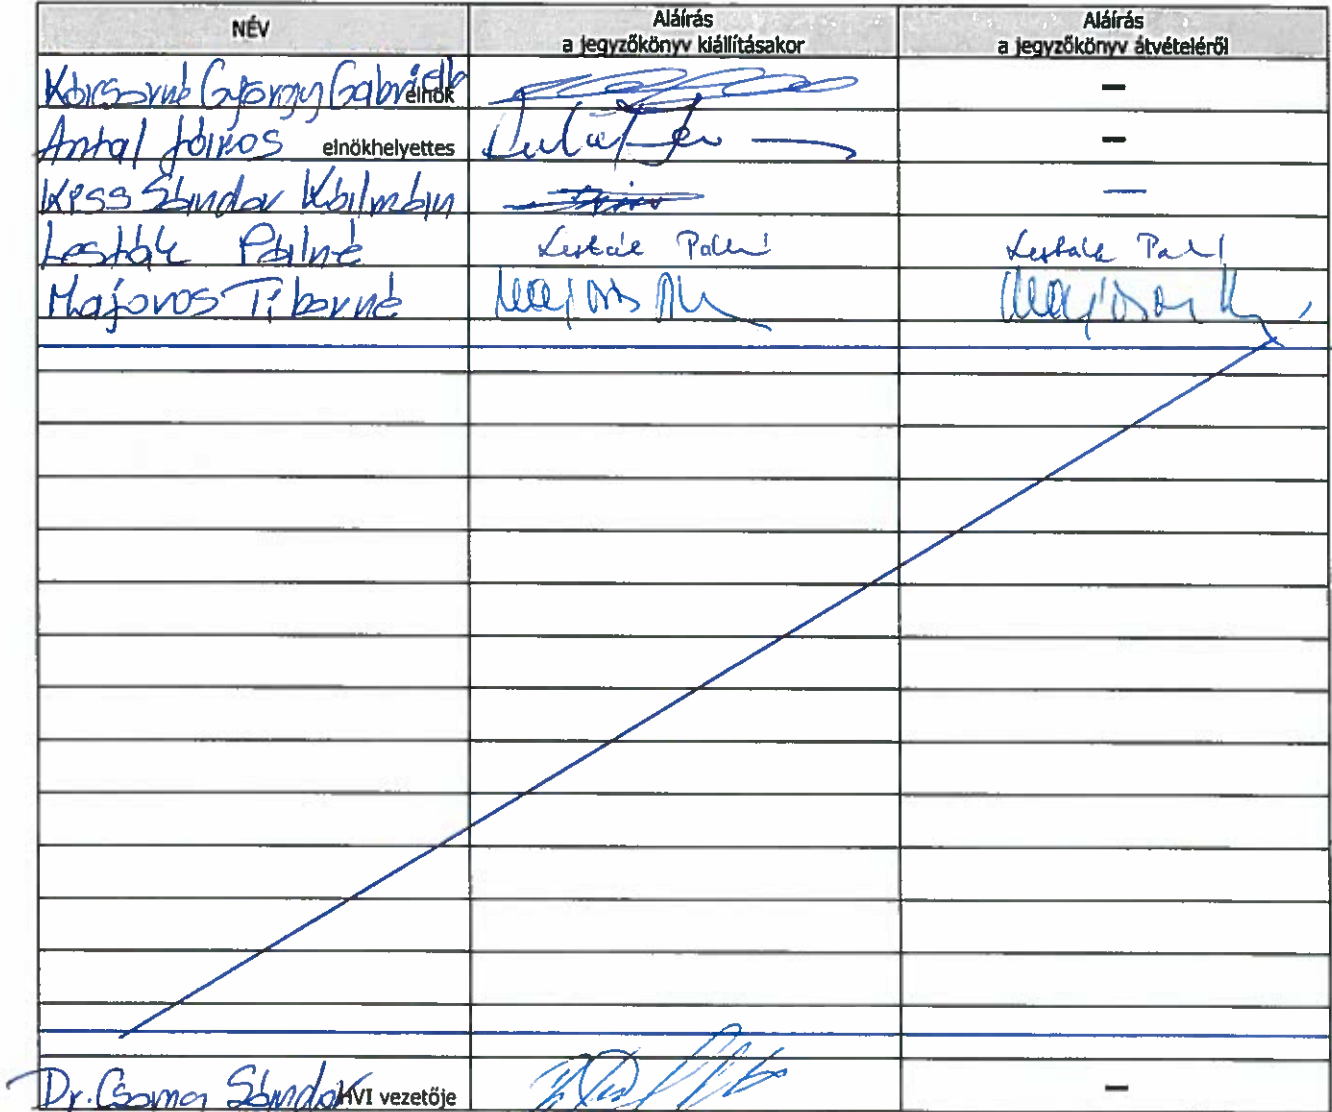 NÉV Aláírás a jegyzőkönyv kiállításakor Aláírás a jegyzőkönyv átvételéről
György Gabriella elnök –
Antal János elnökhelyettes –
Kiss Sándor Kálmán —
Lesták Pálné Lesták Pálné Lesták Pálné
Majoros Tiborné
Dr. Csoma Sándor HVI vezetője –